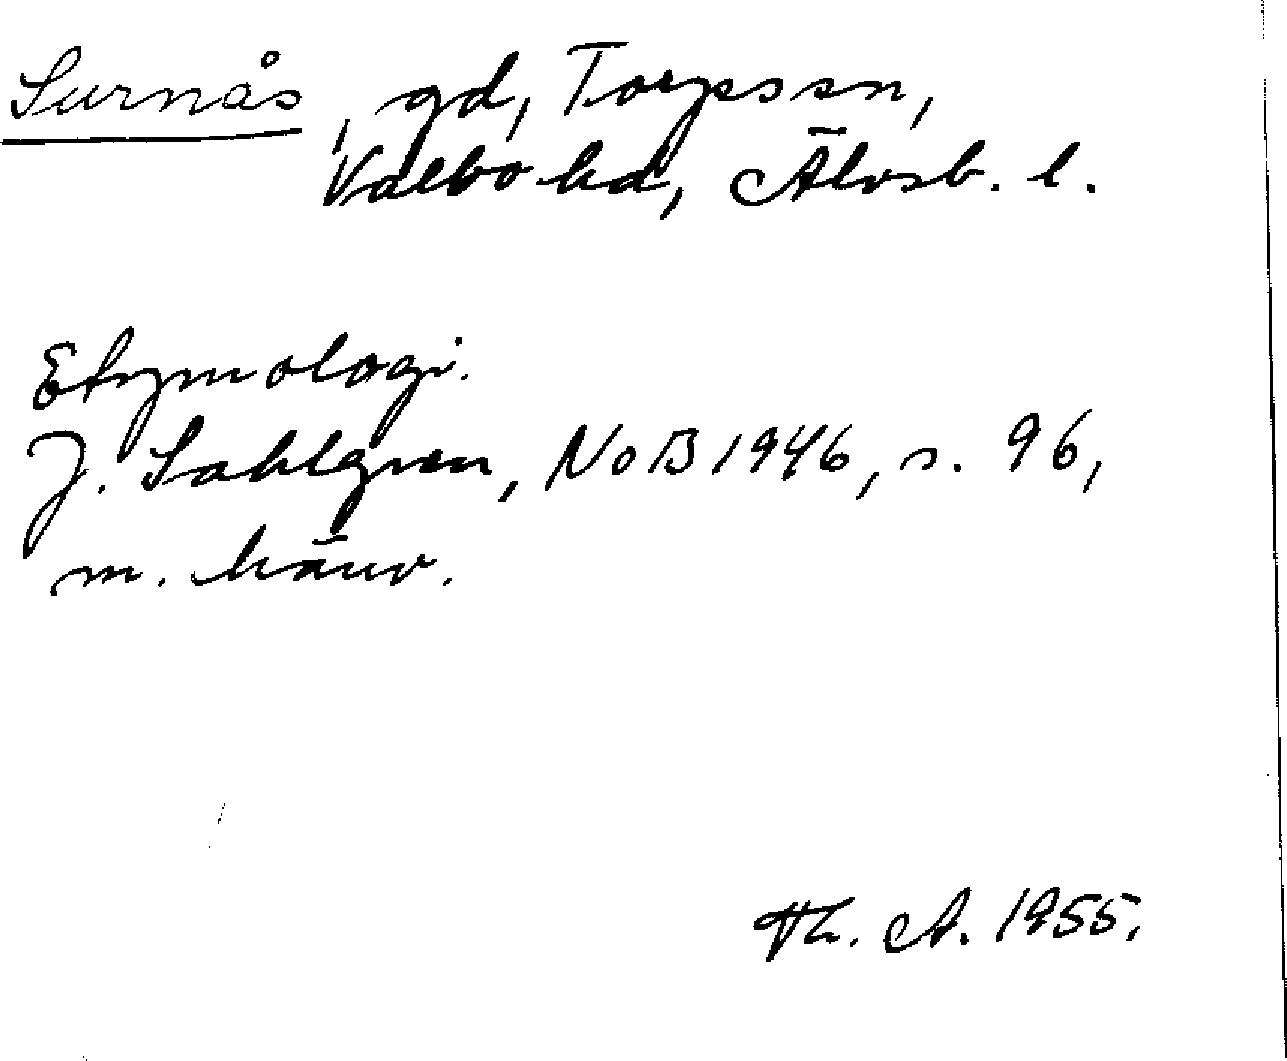 Surnäs, gd, Torpssn,
Valbo hd, Älvsb. l.
Etymologi.
J. Sahlgren, NoB 1946, s. 96,
m. hänv.
Th. A. 1955.